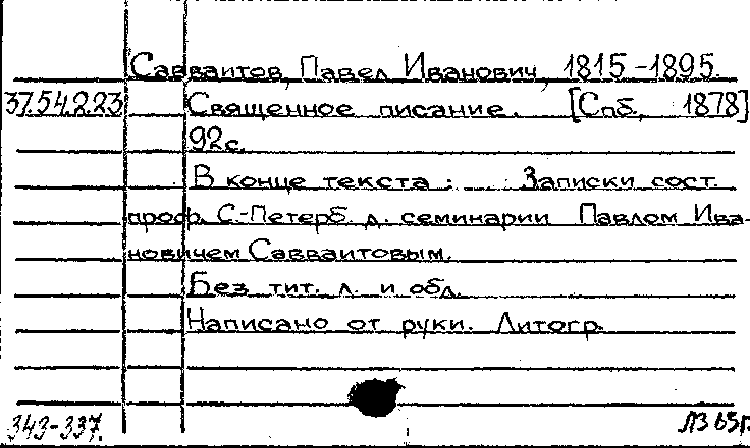 Савваитов, Павел Иванович, 1815-1895.
37.54.2.23 Священное писание. [Спб., 1878]
92с.
В конце текста: ... Записки сост.
проф. С-Петерб. д. семинарии Павлом Ива-
новичем Савваитовым.
Без тит. л. и обл.
Написано от руки. Литогр.
343-337. ЛЗ 65г.